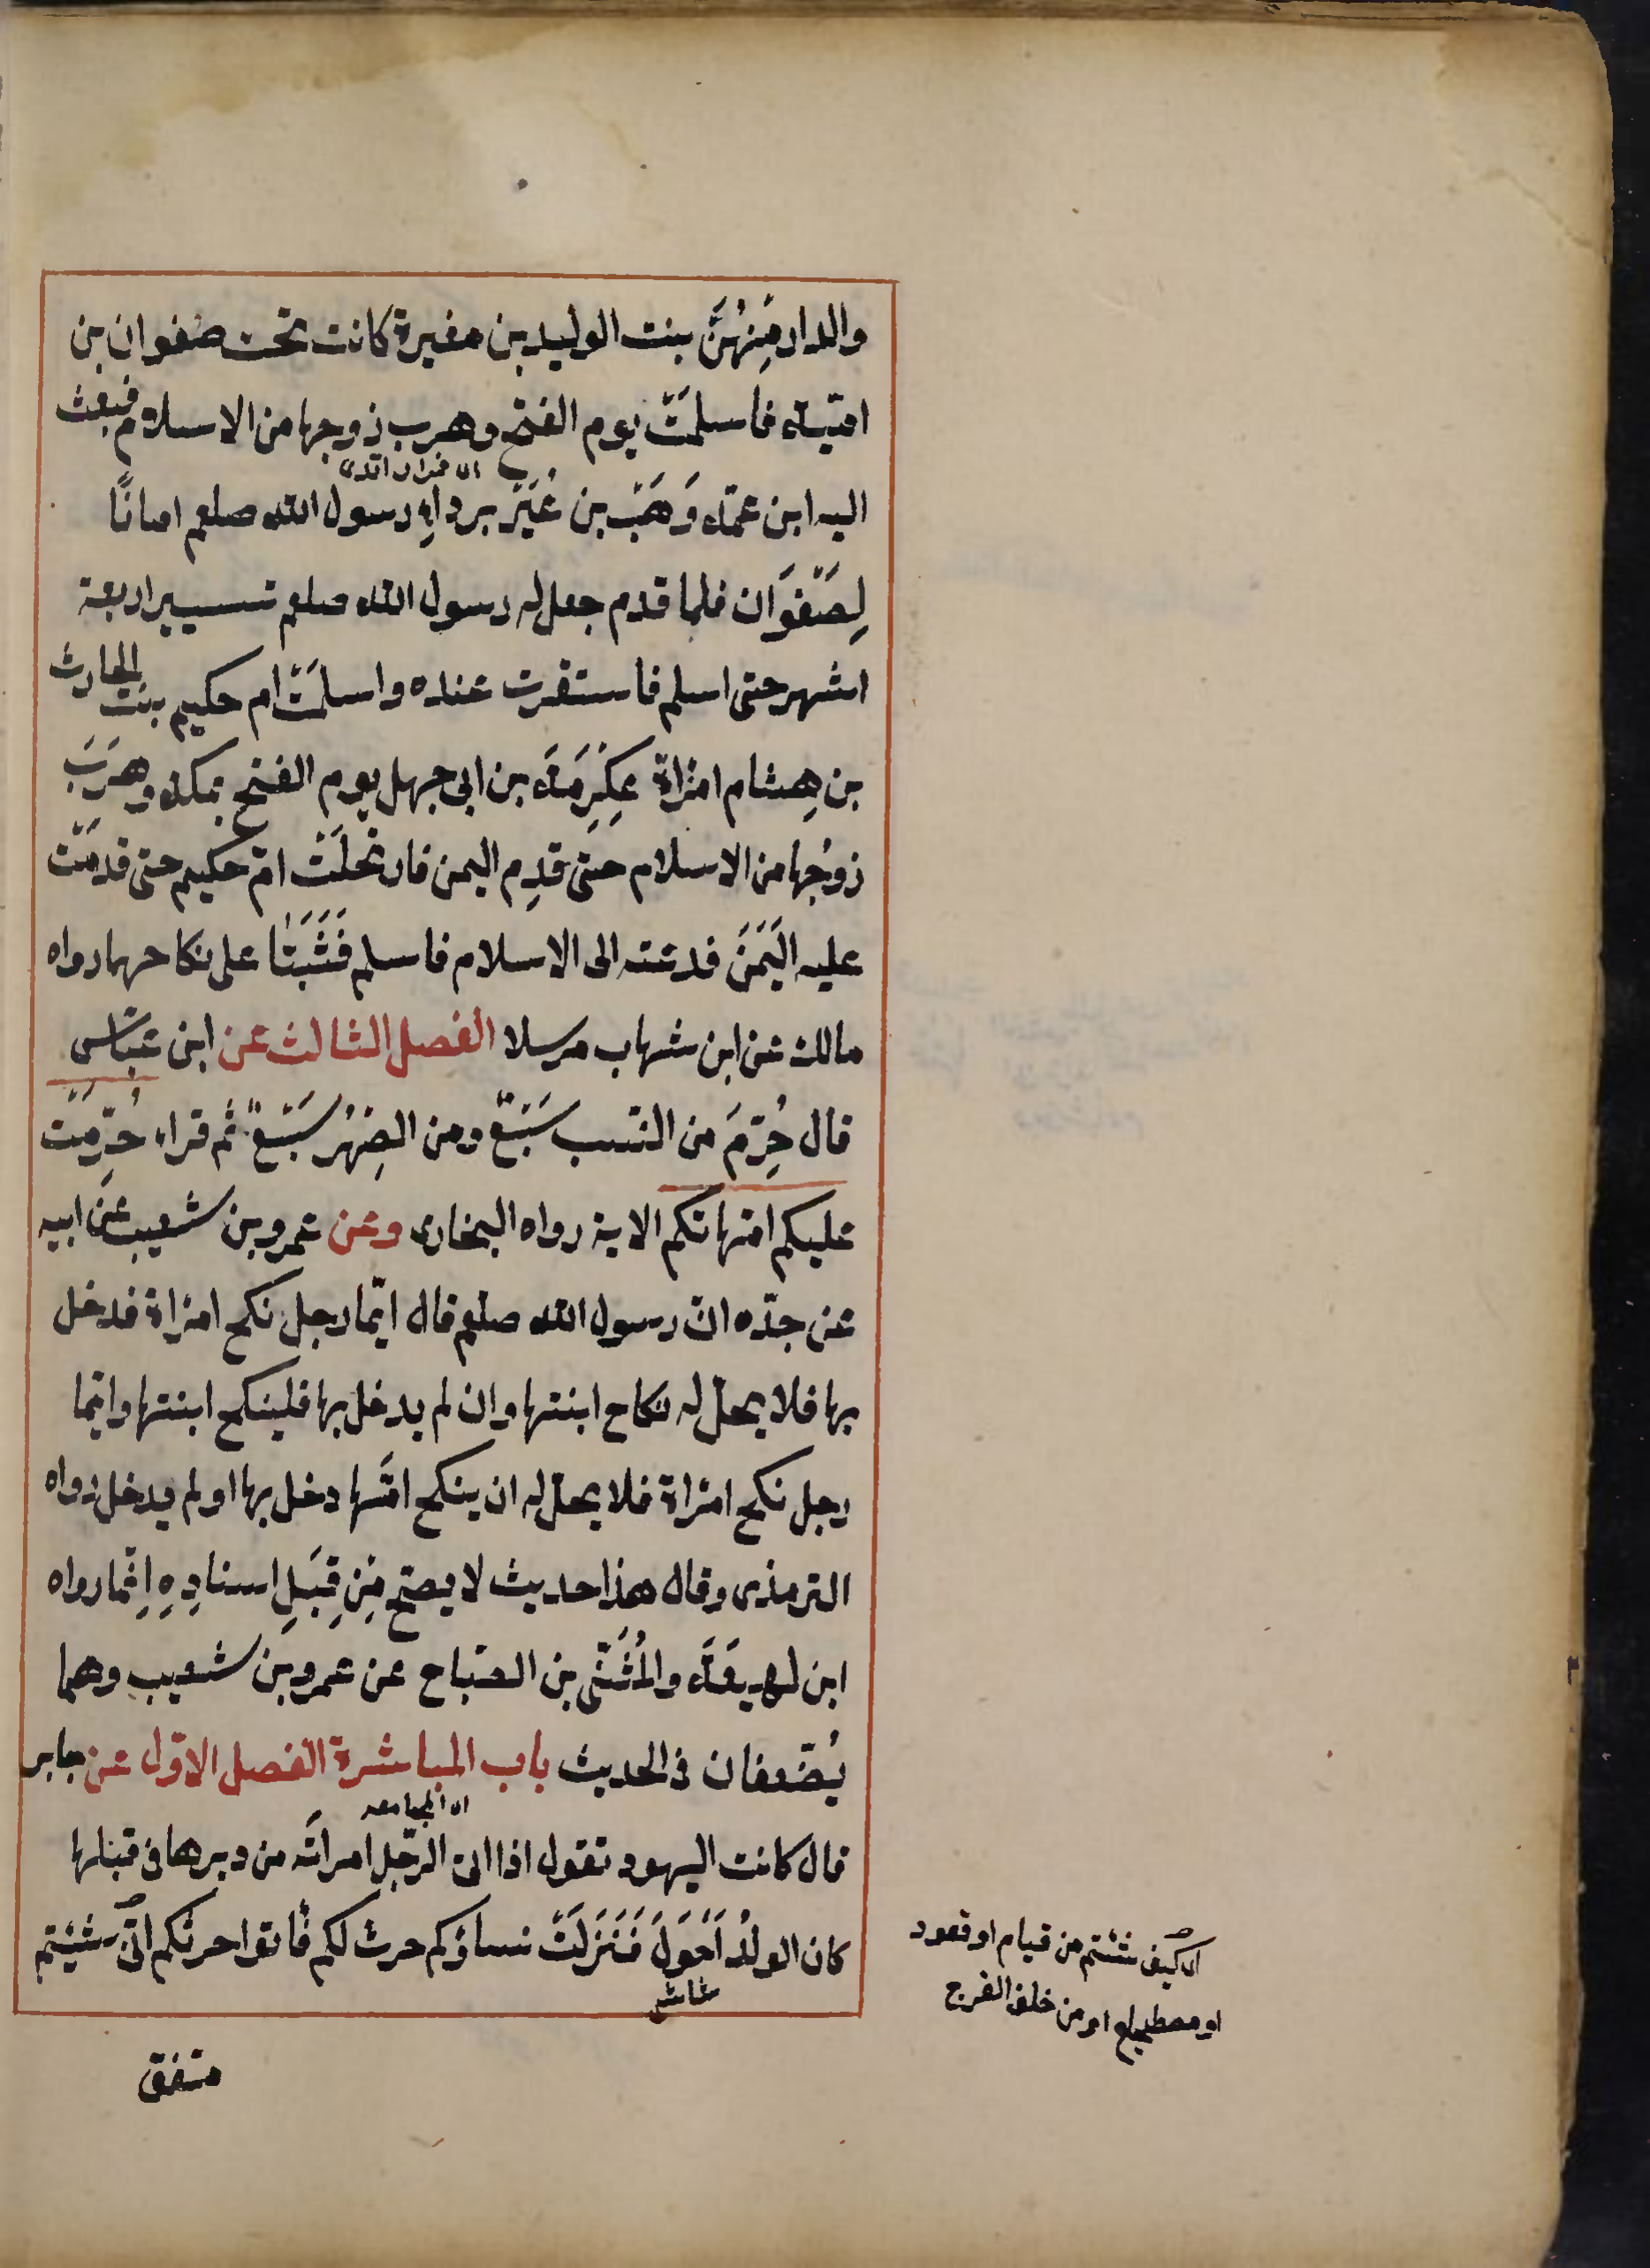 والدار مِنهُنَّ بنت الوليد بن مغيرة كانت تحت صفوان بن
اميّة فاسلمَتْ يوم الفتح وهرب زوجها من الاسلام فبعث
اليه ابن عمّه وَهَبْ بن عُمَيْر برداءِ رسول الله صلعم امانًا
لِصَفْوَان فلما قدم جعل له رسول الله صلعم تسيير اربعة
اشهر حتى اسلم فاستقرت عنده واسلمَتْ ام حكيم بنت الحارث
بن هِشام امْراة عِكْرِمَة بن ابى جهل يوم الفتح بمكة وهَرَبَ
زوْجُها من الاسلام حتى قدِم اليمن فارتحلَتْ امّ حكيم حتى قدمَتْ
عليه اليَمَنَ فدعته الى الاسلام فاسلم فَثَبَتَا على نكاحهما رواه
مالك عن ابن شهاب مرسلا الفصل الثالث عن ابن عبّاس
قال حُرِّمَ من النسب سَبْعٌ ومن الصِهْرُ سَبْعٌ ثم قراء حُرِّمَت
عليكم امّهاتكم الاية رواه البخارى وعن عمرو بن شعيب عن ابيه
عن جدّه انّ رسول الله صلعم قال ايّما رجل نكح امْراة فدخل
بها فلا يحلّ له نكاح ابنتها وان لم يدخل بها فلينكح ابنتها وايّما
رجل نكح امْراة فلا يحلّ له ان ينكح امّها دخل بها او لم يدخل رواه
الترمذى وقال هذا حديث لا يصحّ مِن قِبَلِ اسنادِهِ اِنّما رواه
ابن لهيعَة والمُثَنّى بن الصبّاح عن عمرو بن شعيب وهما
يُضَعّفان فى الحديث باب المباشرة الفصل الاوّل عن جابر
اى المجامعه
قال كانت اليهود تقول اذا اتى الرّجل امراتَه من دبرها فى قبلها
كان الولدُ اَحْوَلَ فَنَزَلَتْ نساؤكم حرث لكم فأتوا حرثكم انّى شئتم
اى كيف شئتم من قيام او قعود
او مصطجع او من خلف الفرج
متفق